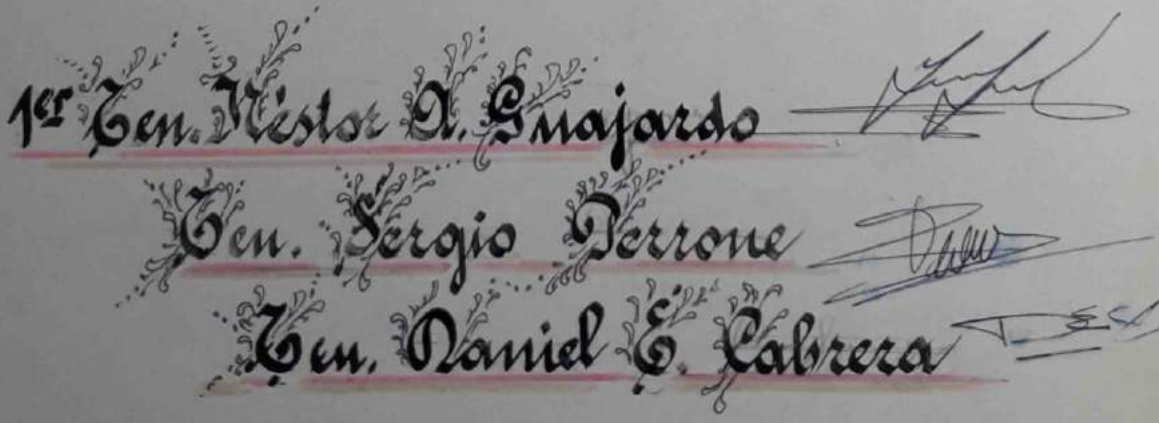 1er Ten. Néstor A. Guajardo
Ten. Sergio Perrone
Ten. Daniel E. Cabrera